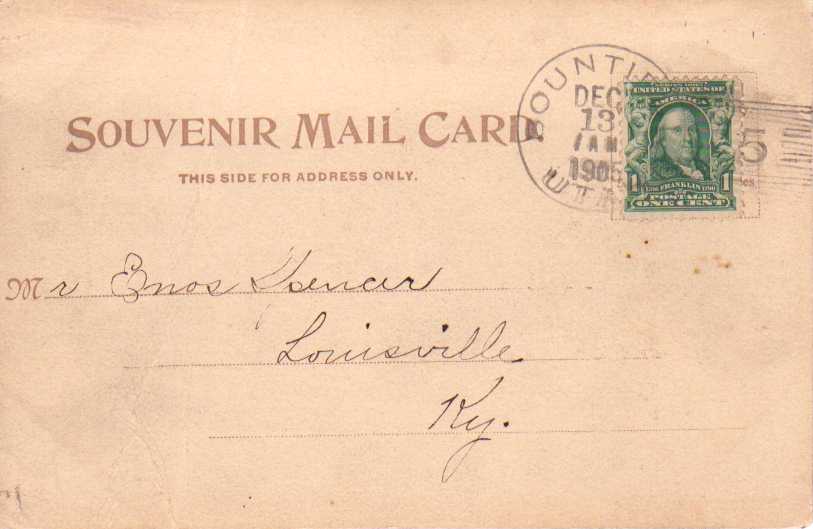 SOUVENIR MAIL CARD
THIS SIDE FOR ADDRESS ONLY.
DEC
13
7 AM
UTAH
SERIES 1902
UNITED STATES OF
AMERICA
1706 FRANKLIN 1790
1 1
POSTAGE
ONE CENT
Mr Enos Spencer
Louisville
Ky.